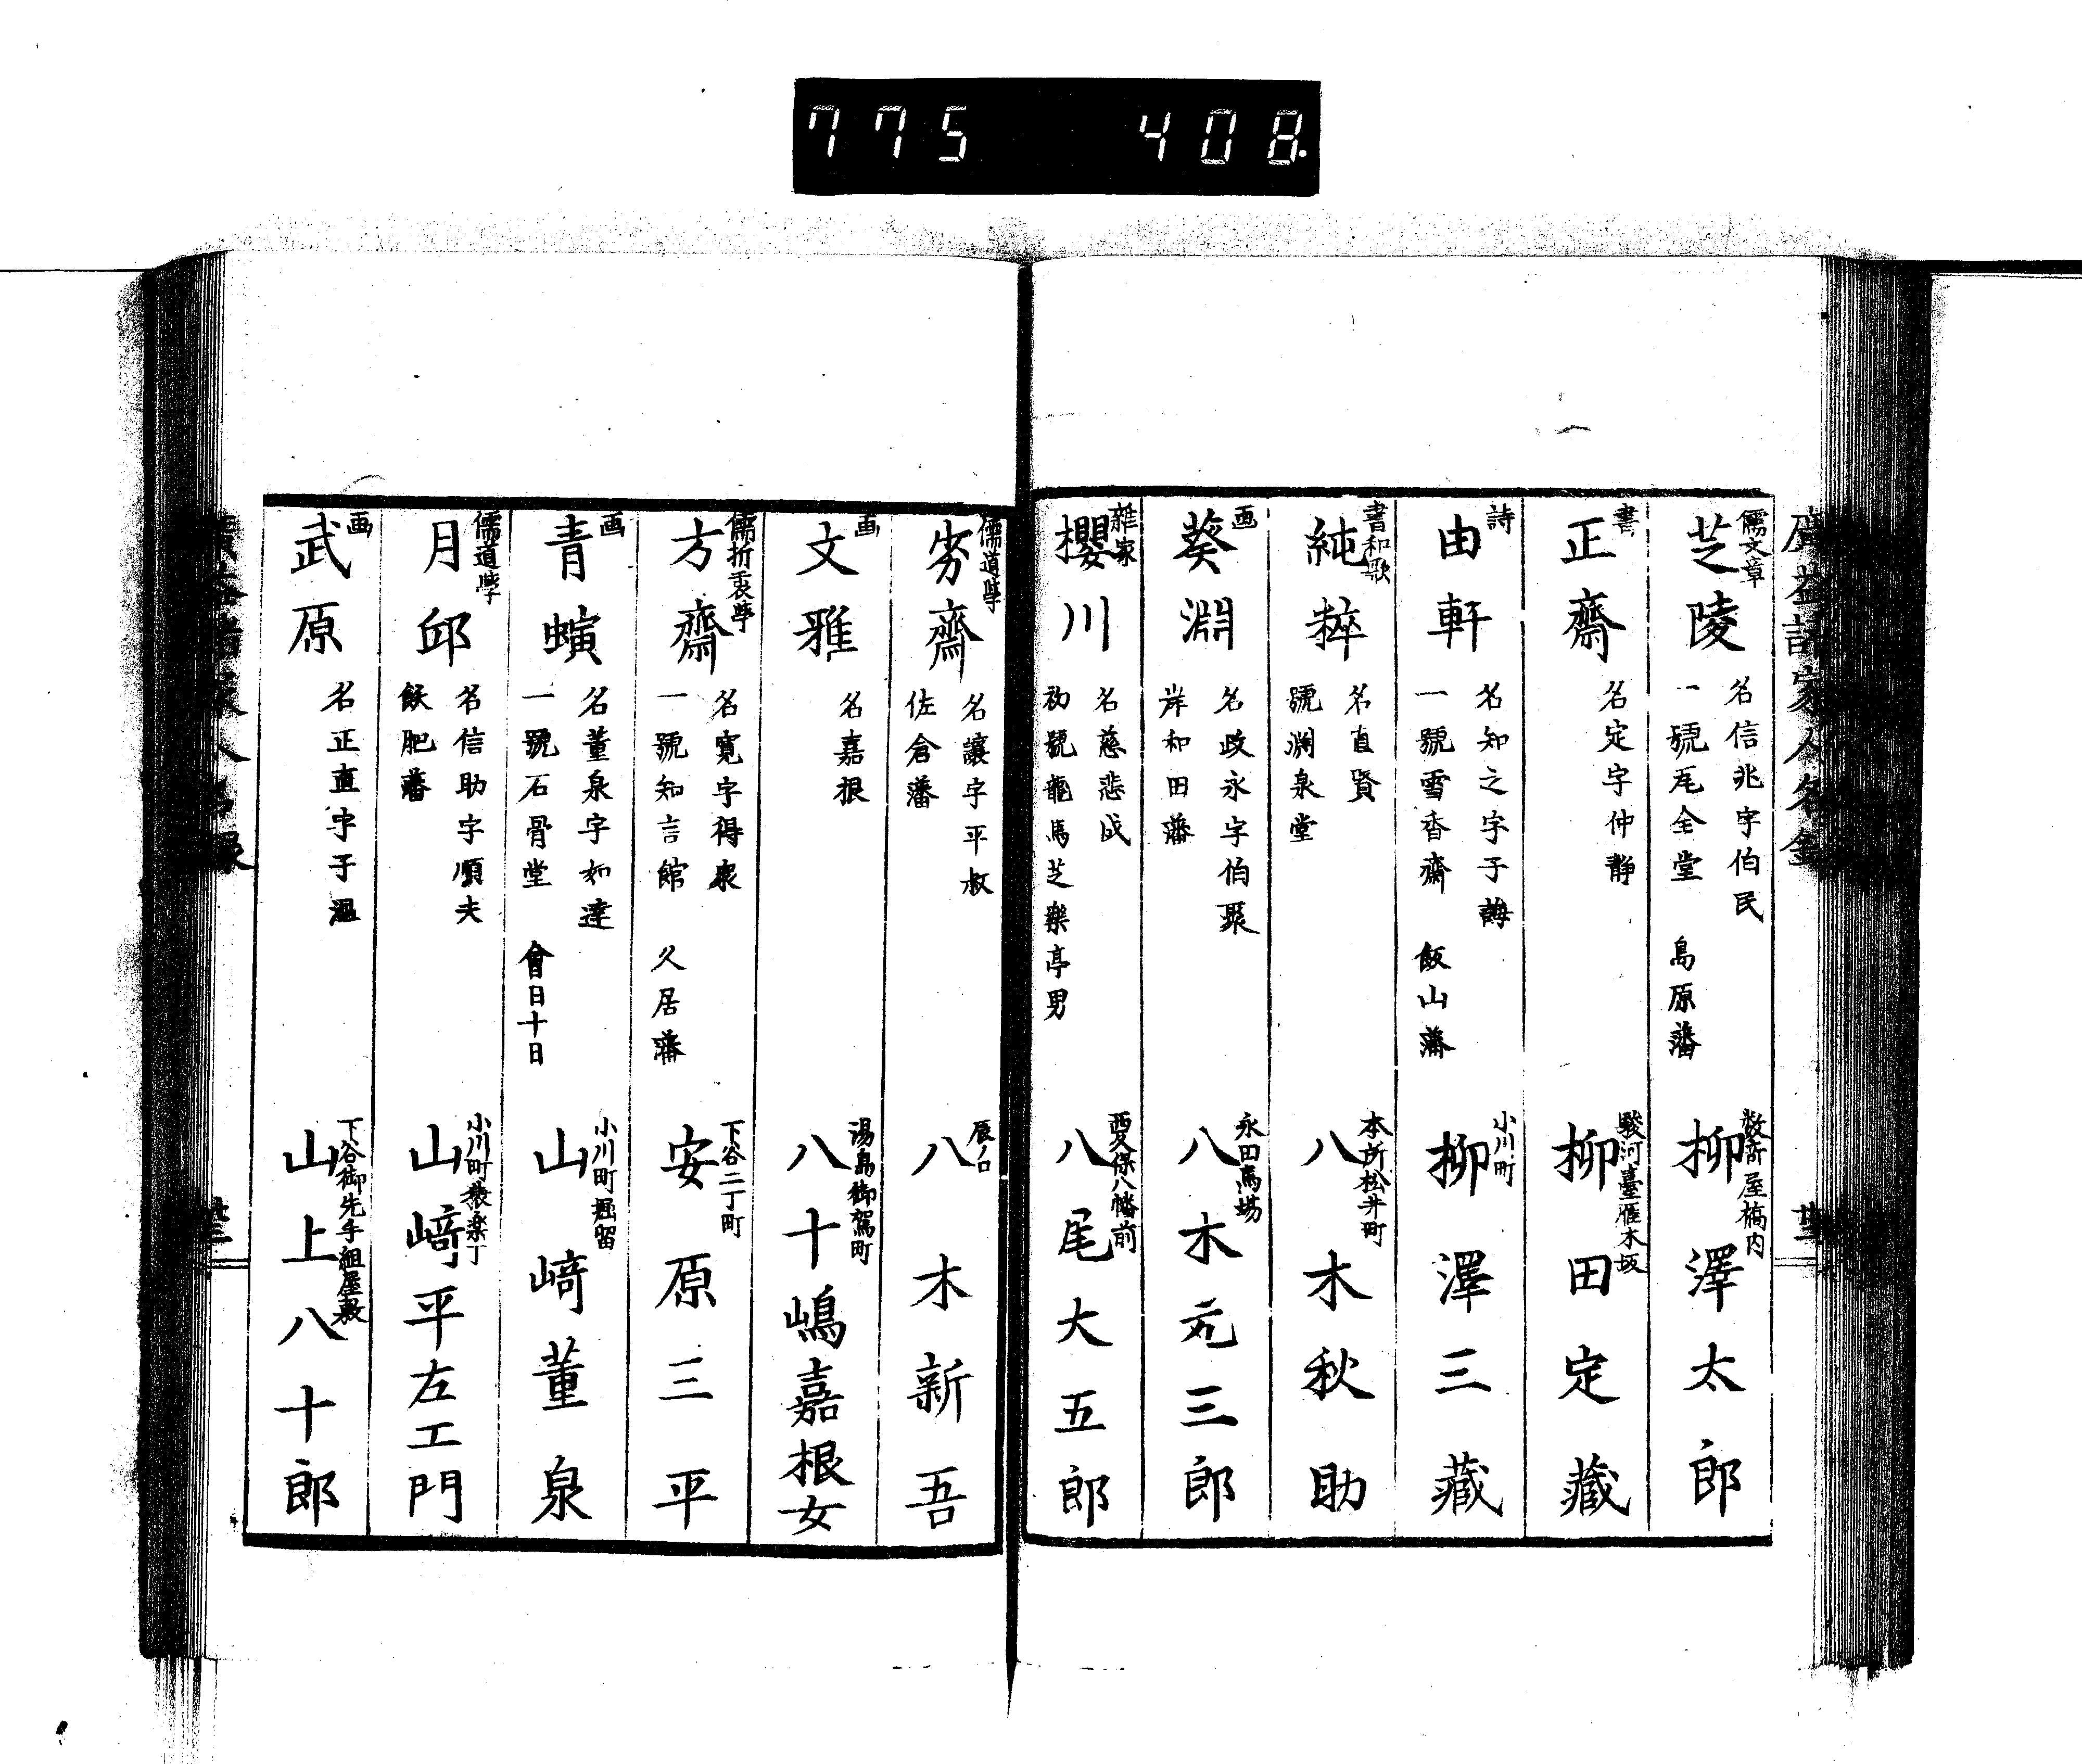 775 408
廣益諸家人名録
儒文章
芝陵
名信兆字伯民
一號瓦全堂 島原藩
数寄屋橋内
柳澤太郎
書
正齋
名定字仲靜
駿河臺雁木坂
柳田定藏
詩
由軒
名知之字子誨
一號雪香齋 飯山藩
小川町
柳澤三藏
書和歌
純粹
名直賢
號瀾泉堂
本所松井町
八木秋助
画
葵淵
名政永字伯聚
岸和田藩
永田馬場
八木元三郎
雜家
櫻川
名慈悲成
初號龍馬芝樂亭男
西久保八幡前
八尾大五郎
儒道學
劣齋
名讓字平叔
佐倉藩
辰ノ口
八木新吾
画
文雅
名嘉根
湯島御駕町
八十嶋嘉根女
儒折衷學
方齋
名寛字得衆
一號知言館 久居藩
下谷二丁町
安原三平
画
青蠙
名董泉字如達
一號石骨堂 會日十日
小川町堀留
山﨑董泉
儒道學
月邱
名信助字順夫
飫肥藩
小川町猿楽丁
山﨑平左工門
画
武原
名正直字子温
下谷御先手組屋敷
山上八十郎
廣益諸家人名録